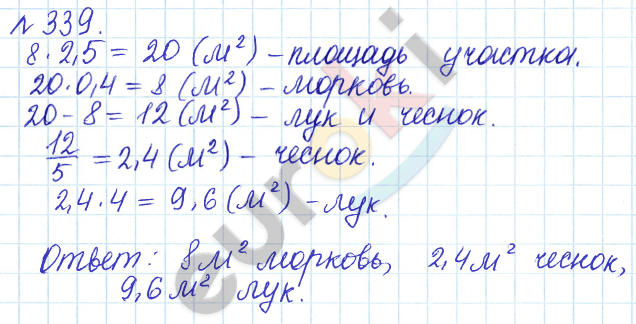 № 339.
8 · 2,5 = 20 (м²) – площадь участка.
20 · 0,4 = 8 (м²) – морковь.
20 – 8 = 12 (м²) – лук и чеснок.
12/5 = 2,4 (м²) – чеснок.
2,4 · 4 = 9,6 (м²) – лук.
Ответ: 8 м² морковь, 2,4 м² чеснок,
9,6 м² лук.
euroki